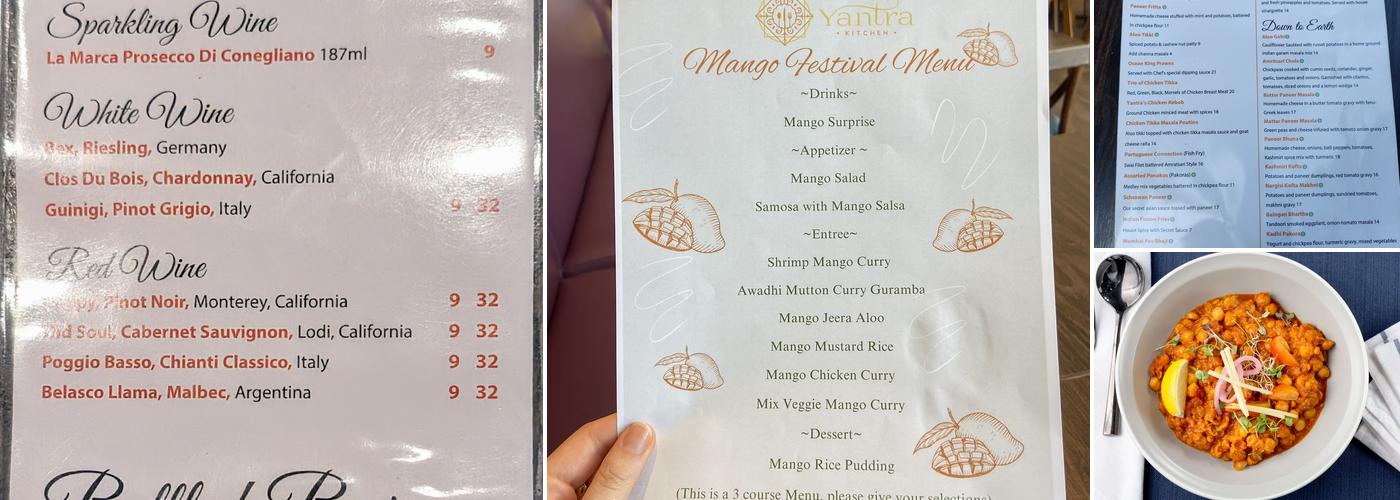 Sparkling Wine
La Marca Prosecco Di Conegliano 187ml 9
White Wine
Riesling, Germany
Clos Du Bois, Chardonnay, California
Guinigi, Pinot Grigio, Italy 9 32
Red Wine
Pinot Noir, Monterey, California 9 32
Soul, Cabernet Sauvignon, Lodi, California 9 32
Poggio Basso, Chianti Classico, Italy 9 32
Belasco Llama, Malbec, Argentina 9 32
Yantra
• KITCHEN •
Mango Festival Menu
~Drinks~
Mango Surprise
~Appetizer ~
Mango Salad
Samosa with Mango Salsa
~Entree~
Shrimp Mango Curry
Awadhi Mutton Curry Guramba
Mango Jeera Aloo
Mango Mustard Rice
Mango Chicken Curry
Mix Veggie Mango Curry
~Dessert~
Mango Rice Pudding
(This is a 3 course Menu, please give your selections)
Paneer Fritta
Homemade cheese stuffed with mint and potatoes, battered
in chickpea flour 11
Aloo Tikki
Spiced potato & cashew nut patty 9
Add chana masala 4
Ocean King Prawns
Served with Chef's special dipping sauce 21
Trio of Chicken Tikka
Red, Green, Black, Morsels of Chicken Breast Meat 20
Yantra's Chicken Kebob
Ground Chicken minced meat with spices 18
Chicken Tikka Masala Poutine
Aloo tikki topped with chicken tikka masala sauce and goat
cheese raita 14
Portuguese Connection (Fish Fry)
Swai Filet battered Amratsari Style 16
Assorted Panakas (Pakoras)
Medley mix vegetables battered in chickpea flour 11
Schzewan Paneer
Our secret asian sauce tossed with paneer 17
Indian Fusion Fries
House Spice with Secret Sauce 7
Mumbai Pav Bhaji
and fresh pineapples and tomatoes. Served with house
vinaigrette 14
Down to Earth
Aloo Gobi
Cauliflower Sautéed with russet potatoes in a home ground
indian garam masala mix 14
Amritsari Chole
Chickpeas cooked with cumin seeds, coriander, ginger,
garlic, tomatoes and onions. Garnished with cilantro,
tomatoes, diced onions and a lemon wedge 14
Butter Paneer Masala
Homemade cheese in a butter tomato gravy with fenu-
Greek leaves 17
Mattar Paneer Masala
Green peas and cheese infused with tomato onion gravy 17
Paneer Bhuna
Homemade cheese, onions, bell peppers, tomatoes,
Kashmiri spice mix with turmeric 18
Kashmiri Kofta
Potatoes and paneer dumplings, red tomato gravy 16
Nargisi Kofta Makhni
Potatoes and paneer dumplings, sundried tomatoes,
makhni gravy 17
Baingan Bhartha
Tandoori smoked eggplant, onion-tomato masala 14
Kadhi Pakora
Yogurt and chickpea flour, turmeric gravy, mixed vegetables